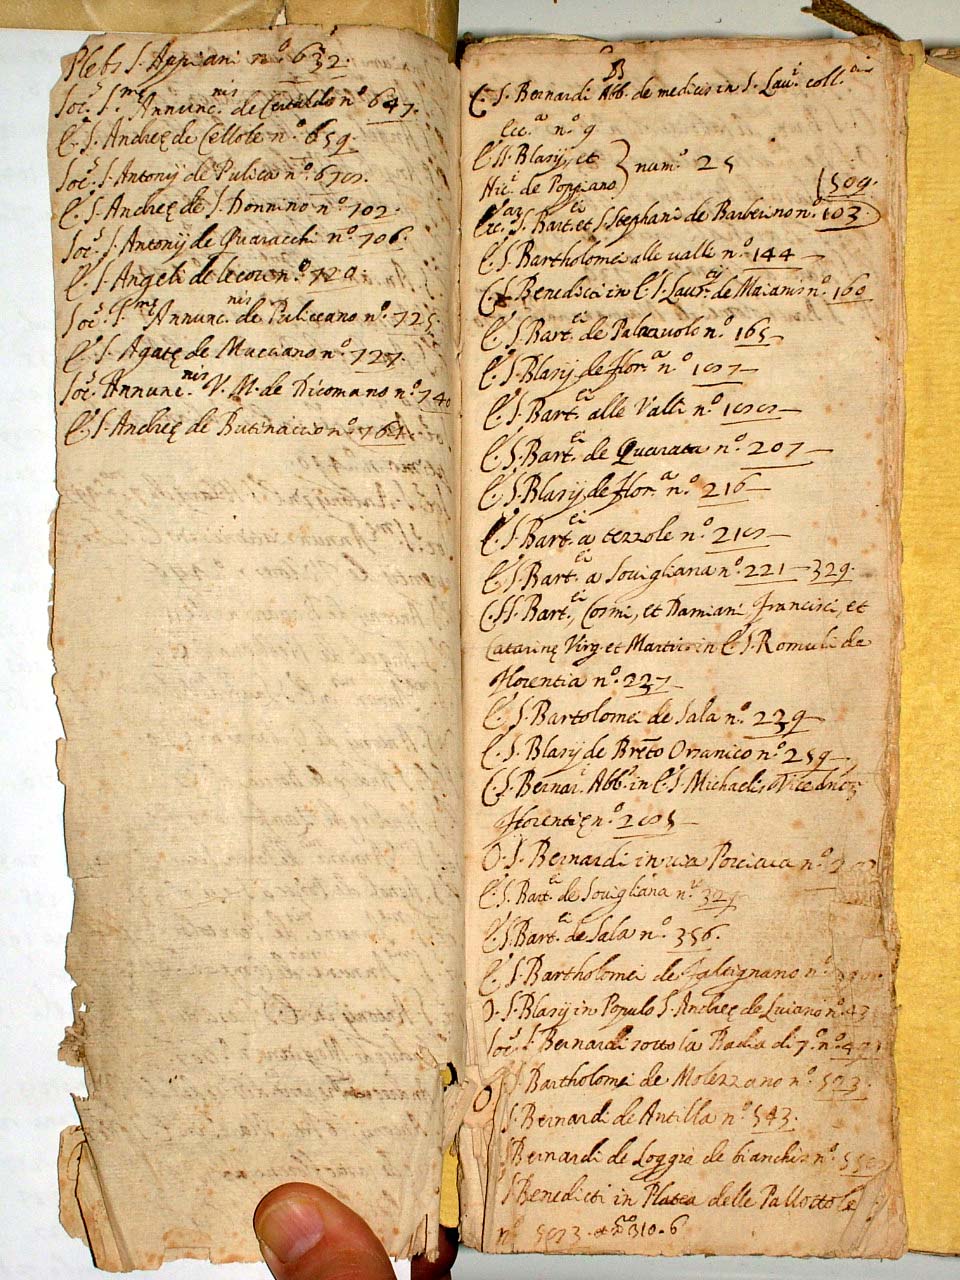 Plebs S. Appiani n.º 632.
Soc.s S.me Annunc.nis de Certaldo n.º 647.
C. S. Andreę de Cellole n.º 659.
Soc.s S. Antonij de Pulica n.º
C. S. Andreę de S. Donnino n.º 702.
Soc.s S. Antonij de Quaracchi n.º 706.
C. S. Angeli de lecore n.º 720
Soc.s S.me Annunc.nis de Puliceano n.º 725.
C. S. Agatę de Mucciano n.º 727.
Soc.s Annunc.nis V. M. de Dicomano n.º 740
C. S. Andreę de Butinaccio n.º 764.
B
C. S. Bernardi Abb. de medicis in S. Lau.i coll.
Ecc.a n.º 9
C. SS. Blasij, et } num.º 25
Nic.i de Poppiano
509.
S. Bart.ei et S. Stephani de Barberino n.º 103
C. S. Bartholomei alle valli n.º 144
C. S. Benedicti in C. S. Laur.ij de Maianis n.º 160
C. S. Bart.ei de Palazuolo n.º 165
C. S. Blasij de flor.a n.º
C. S. Bart.ei alle Valli n.º
C. S. Bart.ei de Quarata n.º 207
C. S. Blasij de flor.a n.º 216
C. S. Bart.ei a terzole n.º
C. S. Bart.ei a Sovigliana n.º 221 - 329.
C. SS. Bart.ei, Cosmi, et Damiani, Francisci, et
Catarinę Virg. et Martiris in C. S. Romuli de
Florentia n.º 227
C. S. Bartolomei de Sala n.º 239
C. S. Blasij de Orsanico n.º 259
C. S. Bernar.i Abb. in C. S. Michaelis
Florentię n.º
O. S. Bernardi in
C. S. Bart.ei de Sovigliana n.º 329
C. S. Bart.ei de Sala n.º 356.
C. S. Bartholomei de Falcignano n.º
O. S. Blasij in Populo S. Andreę de Luiano n.º
Soc.s S. Bernardi sotto la Badia di 7.º n.º
S. Bartholomei de Molezzano n.º 523.
S. Bernardi de Antilla n.º 543.
S. Bernardi de Loggia de bianchis n.º
S. Benedicti in Platea delle Pallottole
n.º 310. 6